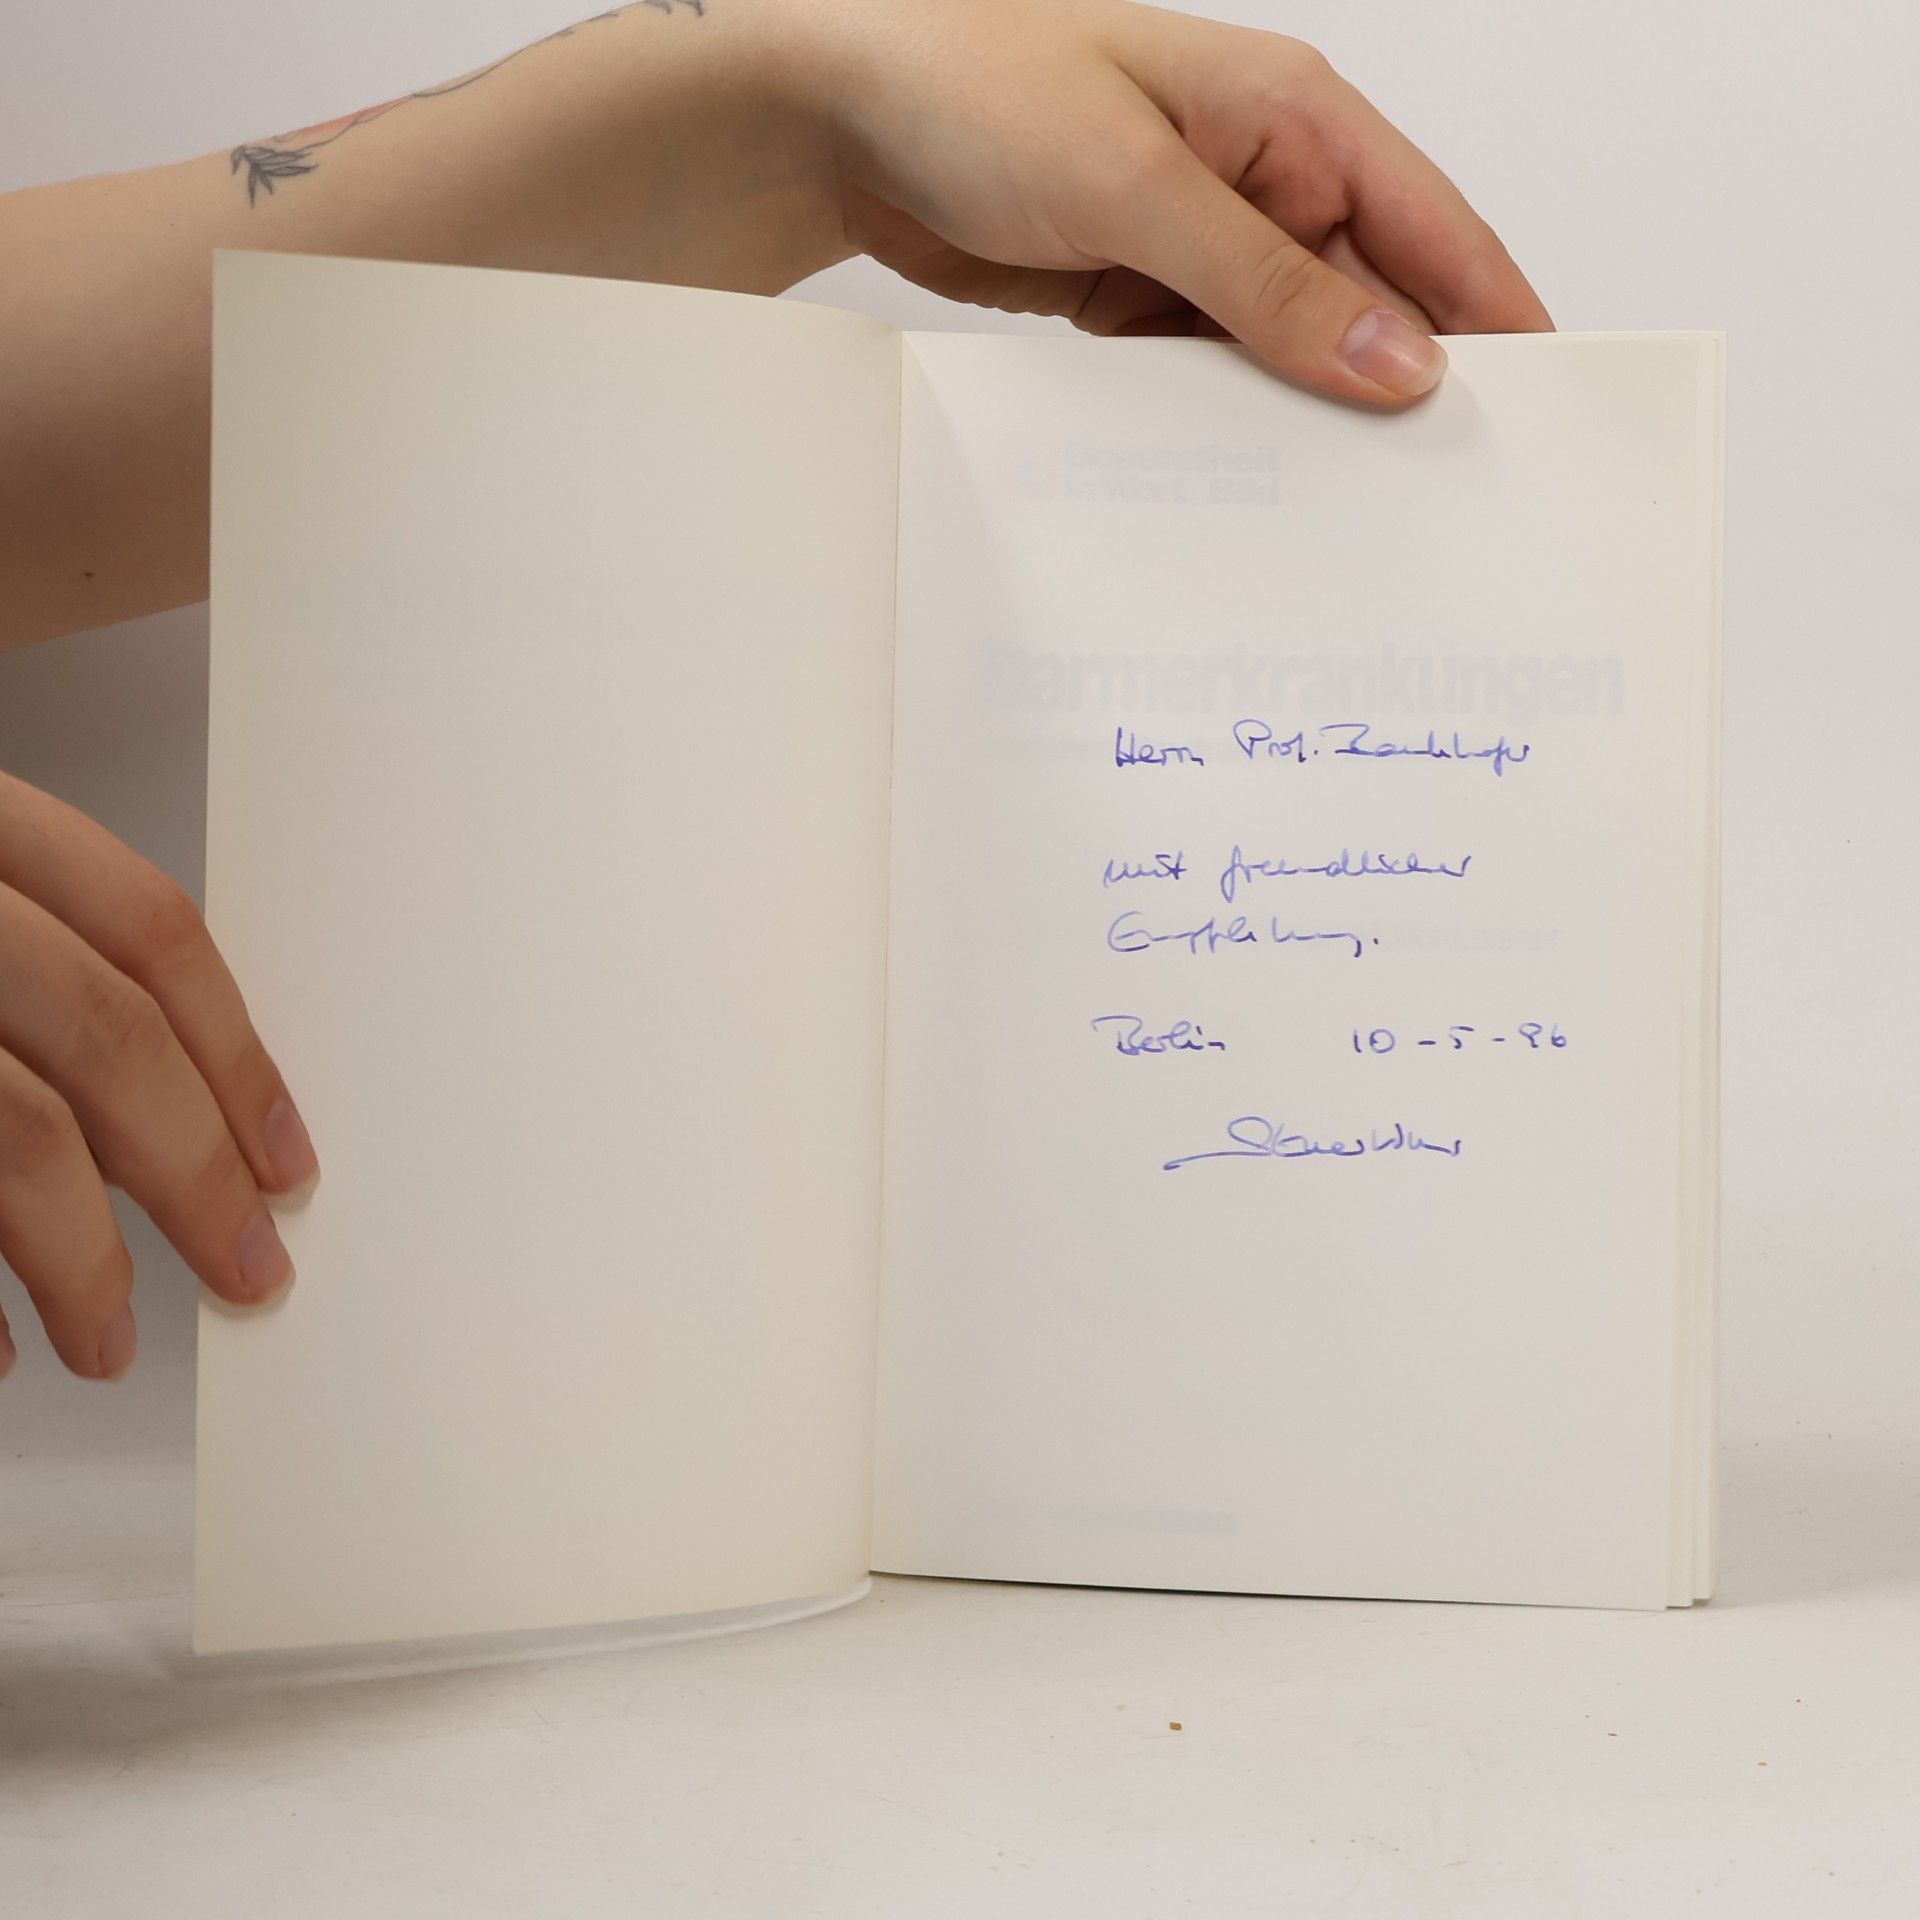 Gesundheit
in Wort + Bild
Darmerkrankungen
Herrn Prof. Bankhofer
mit freundlicher
Empfehlung.
Berlin 10-5-96